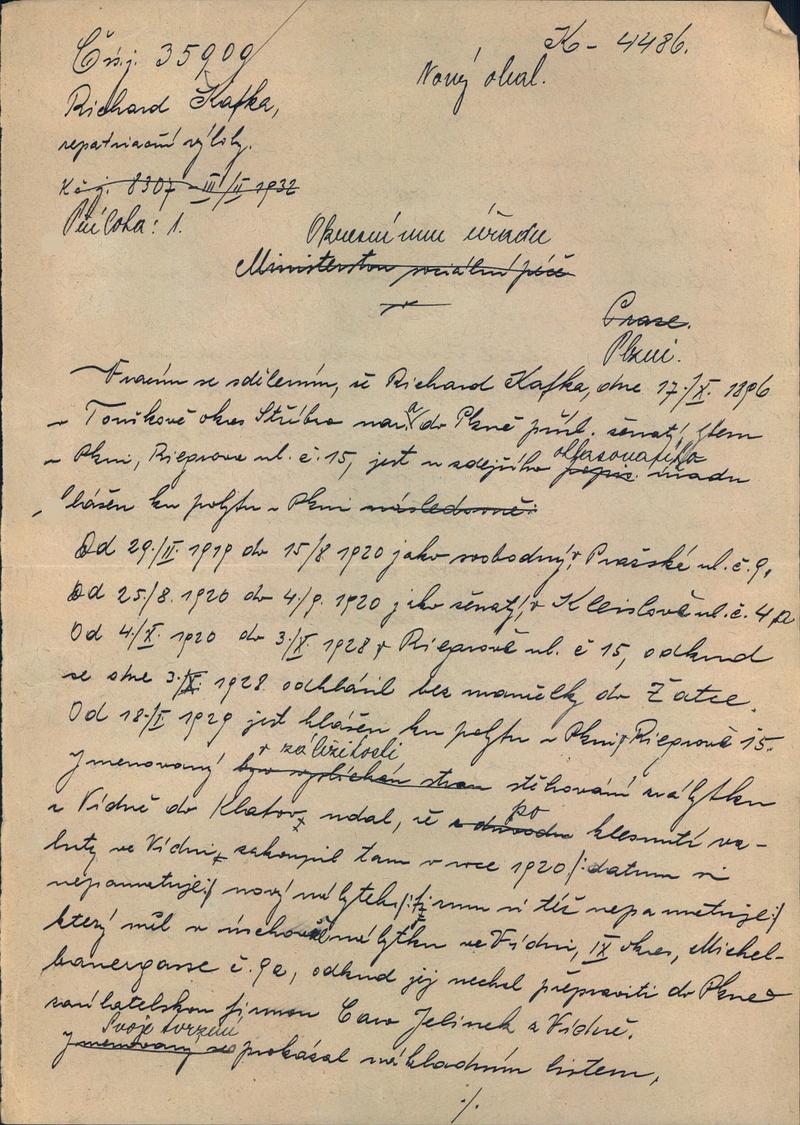 Čís.j. 35909
K - 4486.
Nový obal.
Richard Kafka,
repatriační výlohy.
K č.j. 8307 - III/II 1932
Příloha: 1.
Okresnímu úřadu
Ministerstvu sociální péče
Praze.
Plzni.
Vracím se sdělením, že Richard Kafka, dne 17./X. 1896
v okres Stříbro nar. a do Plzně přísl. ženatý, bytem
v Plzni, Riegrova ul. č. 15, jest u zdejšího popis. ohlašovacího úřadu
hlášen ku pobytu v Plzni následovně:
Od 29./II. 1919 do 15/8 1920 jako svobodný v Pražské ul. č. 9,
Od 25/8. 1920 do 4./9. 1920 jako ženatý v Kleislově ul. č. 4
Od 4/X. 1920 do 3./X. 1928 v Riegrově ul. č 15, odkud
se dne 3./X. 1928 odhlásil bez manželky do Žatce.
Od 18./I. 1929 jest hlášen ku pobytu v Plzni, Riegrově 15.
v záležitosti
Jmenovaný byv vyslíchán stran stěhování nábytku
z Vídně do Klatov, udal, že z důvodu po klesnutí va-
luty ve Vídni, zakoupil tam v roce 1920 /:datum si
nepamatuje:/ nový nábytek /:firmu si též nepamatuje:/
který měl v úschově nábytku ve Vídni, IX okres, Michel-
bauergasse č. 9a, odkud jej nechal přepraviti do Plzně
zasílatelskou firmou Caro Jelinek z Vídně.
Svoje tvrzení
Jmenovaný prokázal nákladním listem,
./.